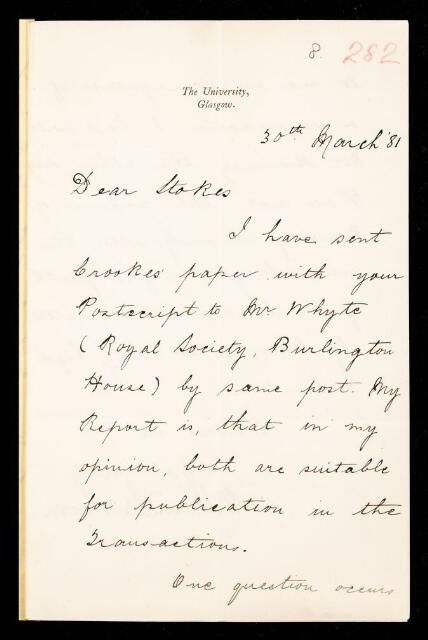 8. 282
The University,
Glasgow.
30th March '81
Dear Stokes
I have sent
Crookes' paper with your
Postscript to Mr Whyte
(Royal Society, Burlington
House) by same post. My
Report is, that in my
opinion, both are suitable
for publication in the
Transactions.
One question occurs